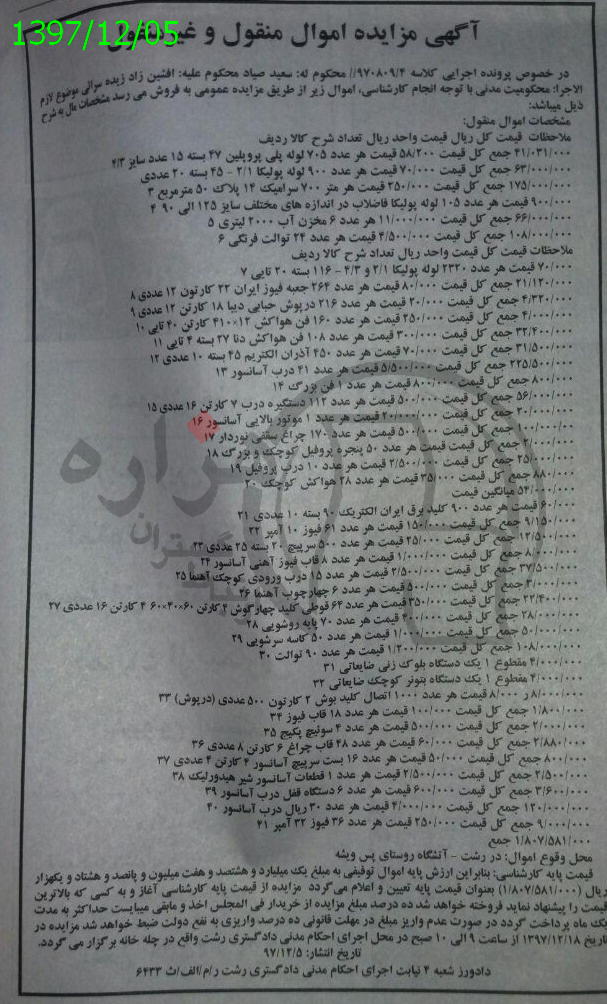 1397/12/05
آگهی مزایده اموال منقول و غیرمنقول
در خصوص پرونده اجرایی کلاسه ۹۷۰۸۰۹/۴// محکوم له: سعید صیاد محکوم علیه: افشین زاد زیده سرائی موضوع لازم
الاجرا: محکومیت مدنی با توجه انجام کارشناسی، اموال زیر از طریق مزایده عمومی به فروش می رسد مشخصات مال به شرح
ذیل میباشد:
مشخصات اموال منقول:
ملاحظات قیمت کل ریال قیمت واحد ریال تعداد شرح کالا ردیف
۴۱/۰۳۱/۰۰۰ جمع کل قیمت ۵۸/۲۰۰ قیمت هر عدد ۷۰۵ لوله پلی پروپلین ۴۷ بسته ۱۵ عدد سایز ۴/۳
۶۳/۰۰۰/۰۰۰ جمع کل قیمت ۷۰/۰۰۰ قیمت هر عدد ۹۰۰ لوله پولیکا ۲/۱ - ۴۵ بسته ۲۰ عددی
۱۷۵/۰۰۰/۰۰۰ جمع کل قیمت ۲۵۰/۰۰۰ قیمت هر متر ۷۰۰ سرامیک ۱۴ پلاک ۵۰ مترمربع ۳
۹۰۰/۰۰۰ قیمت هر عدد ۱۰۵ لوله پولیکا فاضلاب در اندازه های مختلف سایز ۱۲۵ الی ۹۰ ۴
۶۶/۰۰۰/۰۰۰ جمع کل قیمت ۱۱/۰۰۰/۰۰۰ هر عدد ۶ مخزن آب ۲۰۰۰ لیتری ۵
۱۰۸/۰۰۰/۰۰۰ جمع کل قیمت ۴/۵۰۰/۰۰۰ قیمت هر عدد ۲۴ توالت فرنگی ۶
ملاحظات قیمت کل قیمت واحد ریال تعداد شرح کالا ردیف
۷۰/۰۰۰ قیمت هر عدد ۲۳۲۰ لوله پولیکا ۲/۱ و ۴/۳ - ۱۱۶ بسته ۲۰ تایی ۷
۲۱/۱۲۰/۰۰۰ جمع کل قیمت ۸۰/۰۰۰ قیمت هر عدد ۲۶۴ جعبه فیوز ایران ۲۲ کارتون ۱۲ عددی ۸
۴/۳۲۰/۰۰۰ جمع کل قیمت ۲۰/۰۰۰ قیمت هر عدد ۲۱۶ درپوش حبابی دیبا ۱۸ کارتن ۱۲ عددی ۹
۴/۰۰۰/۰۰۰ جمع کل قیمت ۲۵۰/۰۰۰ قیمت هر عدد ۱۶۰ فن هواکش ۱۲×۱۰ ۴ کارتن ۴۰ تایی ۱۰
۳۲/۴۰۰/۰۰۰ جمع کل قیمت ۳۰۰/۰۰۰ قیمت هر عدد ۱۰۸ فن هواکش دنا ۲۷ بسته ۴ تایی ۱۱
۳۱/۵۰۰/۰۰۰ جمع کل قیمت ۷۰/۰۰۰ قیمت هر عدد ۴۵۰ آذران الکتریم ۴۵ بسته ۱۰ عددی ۱۲
۲۲۵/۵۰۰/۰۰۰ جمع کل قیمت ۵/۵۰۰/۰۰۰ قیمت هر عدد ۴۱ درب آسانسور ۱۳
۸۰۰/۰۰۰ جمع کل قیمت ۸۰۰/۰۰۰ قیمت هر عدد ۱ فن بزرگ ۱۴
۵۶/۰۰۰/۰۰۰ جمع کل قیمت ۵۰۰/۰۰۰ قیمت هر عدد ۱۱۲ دستگیره درب ۷ کارتن ۱۶ عددی ۱۵
۲۰/۰۰۰/۰۰۰ جمع کل قیمت ۲۰/۰۰۰/۰۰۰ قیمت هر عدد ۱ موتور بالابی آسانسور ۱۶
۱۰۰/۰۰۰ جمع کل قیمت ۵۰۰/۰۰۰ قیمت هر عدد ۱۷۰ چراغ سقفی نوردار ۱۷
۲/۰۰۰/۰۰۰ جمع کل قیمت قیمت هر عدد ۵۰ پنجره پروفیل کوچک و بزرگ ۱۸
۲۵/۰۰۰/۰۰۰ جمع کل قیمت ۲/۵۰۰/۰۰۰ قیمت هر عدد ۱۰ درب پروفیل ۱۹
۸۸۰/۰۰۰ جمع کل قیمت ۳۵/۰۰۰ قیمت هر عدد ۲۸ هواکش کوچک ۲۰
۵۴/۰۰۰/۰۰۰ میانگین قیمت
۶۰/۰۰۰ قیمت هر عدد ۹۰۰ کلید برق ایران الکتریک ۹۰ بسته ۱۰ عددی ۲۱
۹/۱۵۰/۰۰۰ جمع کل قیمت ۱۵۰/۰۰۰ قیمت هر عدد ۶۱ فیوز ۱۰ آمپر ۲۲
۱۲/۵۰۰/۰۰۰ جمع کل قیمت ۲۵/۰۰۰ قیمت هر عدد ۵۰۰ سرپیچ ۲۰ بسته ۲۵ عددی ۲۳
۸/۰۰۰/۰۰۰ جمع کل قیمت ۱/۰۰۰/۰۰۰ قیمت هر عدد ۸ قاب فیوز آهنی آسانسور ۲۴
۳۷/۵۰۰/۰۰۰ جمع کل قیمت ۲/۵۰۰/۰۰۰ قیمت هر عدد ۱۵ درب ورودی کوچک آهنما ۲۵
۳/۰۰۰/۰۰۰ جمع کل قیمت ۵۰۰/۰۰۰ قیمت هر عدد ۶ چهارچوب آهنما ۲۶
۲۲/۴۰۰/۰۰۰ جمع کل قیمت ۳۵۰/۰۰۰ قیمت هر عدد ۶۴ قوطی کلید چهارگوش ۴ کارتن ۶۰×۴۰×۶۰ ۴ کارتن ۱۶ عددی ۲۷
۲۸/۰۰۰/۰۰۰ جمع کل قیمت ۴۰۰/۰۰۰ قیمت هر عدد ۷۰ پایه روشویی ۲۸
۵۰/۰۰۰/۰۰۰ جمع کل قیمت ۱/۰۰۰/۰۰۰ قیمت هر عدد ۵۰ کاسه سرشویی ۲۹
۱۰۸/۰۰۰/۰۰۰ جمع کل قیمت ۱/۲۰۰/۰۰۰ قیمت هر عدد ۹۰ توالت ۳۰
۴/۰۰۰/۰۰۰ مقطوع ۱ یک دستگاه بلوک زنی ضایعاتی ۳۱
۴/۰۰۰/۰۰۰ مقطوع ۱ یک دستگاه بتونر کوچک ضایعاتی ۳۲
۸/۰۰۰/۰۰۰ ر ۸/۰۰۰ قیمت هر عدد ۱۰۰۰ اتصال کلید بوش ۲ کارتون ۵۰۰ عددی (درپوش) ۳۳
۱/۸۰۰/۰۰۰ جمع کل قیمت ۱۰۰/۰۰۰ قیمت هر عدد ۱۸ قاب فیوز ۳۴
۲/۰۰۰/۰۰۰ جمع کل قیمت ۵۰۰/۰۰۰ قیمت هر عدد ۴ سوئیچ پکیج ۳۵
۲/۸۸۰/۰۰۰ جمع کل قیمت ۶۰/۰۰۰ قیمت هر عدد ۴۸ قاب چراغ ۶ کارتن ۸ عددی ۳۶
۸۰۰/۰۰۰ جمع کل قیمت ۵۰/۰۰۰ قیمت هر عدد ۱۶ بست سرپیچ آسانسور ۴ کارتن ۴ عددی ۳۷
۲/۵۰۰/۰۰۰ جمع کل قیمت ۲/۵۰۰/۰۰۰ قیمت هر عدد ۱ قطعات آسانسور شیر هیدورلیک ۳۸
۳/۶۰۰/۰۰۰ جمع کل قیمت ۶۰۰/۰۰۰ قیمت هر عدد ۶ دستگاه قفل درب آسانسور ۳۹
۱۲۰/۰۰۰/۰۰۰ جمع کل قیمت ۴/۰۰۰/۰۰۰ قیمت هر عدد ۳۰ ریال درب آسانسور ۴۰
۹/۰۰۰/۰۰۰ جمع کل قیمت ۲۵۰/۰۰۰ قیمت هر عدد ۳۶ فیوز ۳۲ آمپر ۴۱
۱/۸۰۷/۵۸۱/۰۰۰ جمع
محل وقوع اموال: در رشت - آتشگاه روستای پس ویشه
قیمت پایه کارشناسی: بنابراین ارزش پایه اموال توقیفی به مبلغ یک میلیارد و هشتصد و هفت میلیون و پانصد و هشتاد و یکهزار
ریال (۱/۸۰۷/۵۸۱/۰۰۰) بعنوان قیمت پایه تعیین و اعلام می گردد مزایده از قیمت پایه کارشناسی آغاز و به کسی که بالاترین
قیمت را پیشنهاد نماید فروخته خواهد شد ده درصد مبلغ مزایده از خریدار فی المجلس اخذ و مابقی میبایست حداکثر به مدت
یک ماه پرداخت گردد در صورت عدم واریز مبلغ در مهلت قانونی ده درصد واریزی به نفع دولت ضبط خواهد شد مزایده در
تاریخ ۱۳۹۷/۱۲/۱۸ از ساعت ۹ الی ۱۰ صبح در محل اجرای احکام مدنی دادگستری رشت واقع در چله خانه برگزار می گردد.
تاریخ انتشار: ۹۷/۱۲/۵
دادورز شعبه ۴ نیابت اجرای احکام مدنی دادگستری رشت ر/م/الف/ث ۶۴۳۳
هزاره